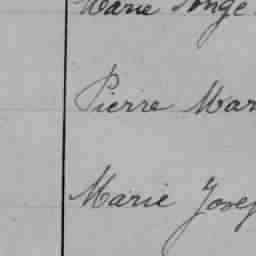 Marie Ange
Pierre Mar
Marie Josep